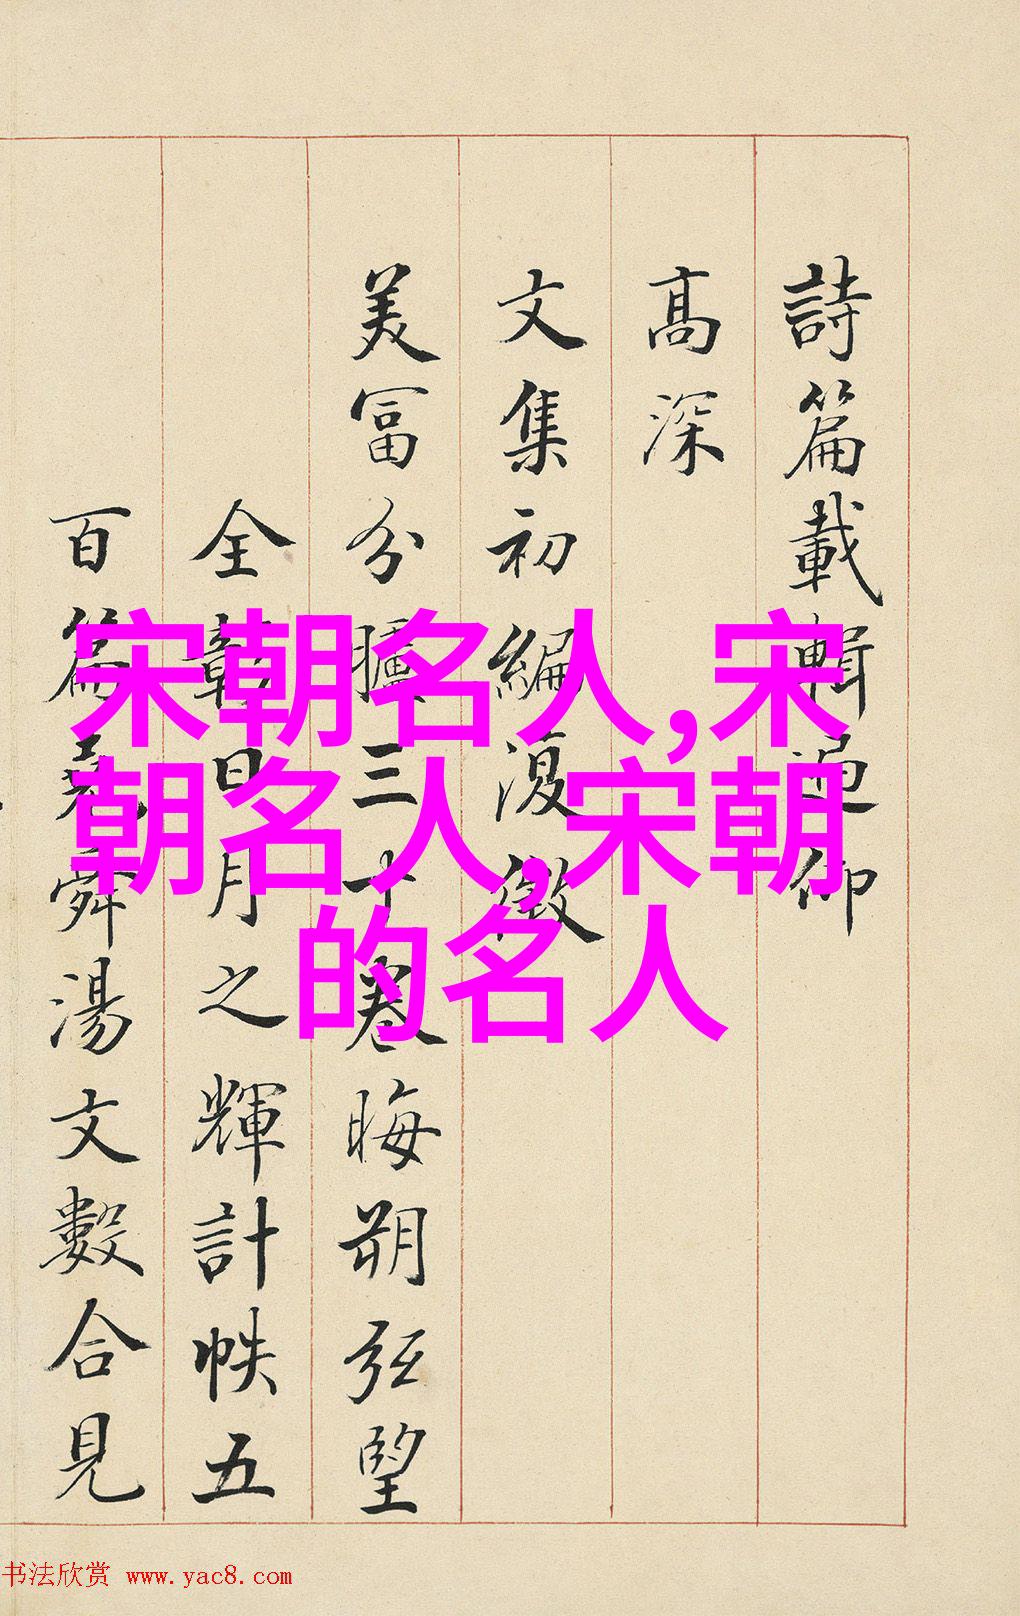 詩篇載輯通仰
高深
文集初編復徵
美富分臚三十卷晦朔弦望
全彰日月之輝計帙五
百篇堯舜湯文數合見
宋朝名人,宋
朝名人,宋朝
的名人
书法欣赏 www.yac8.com